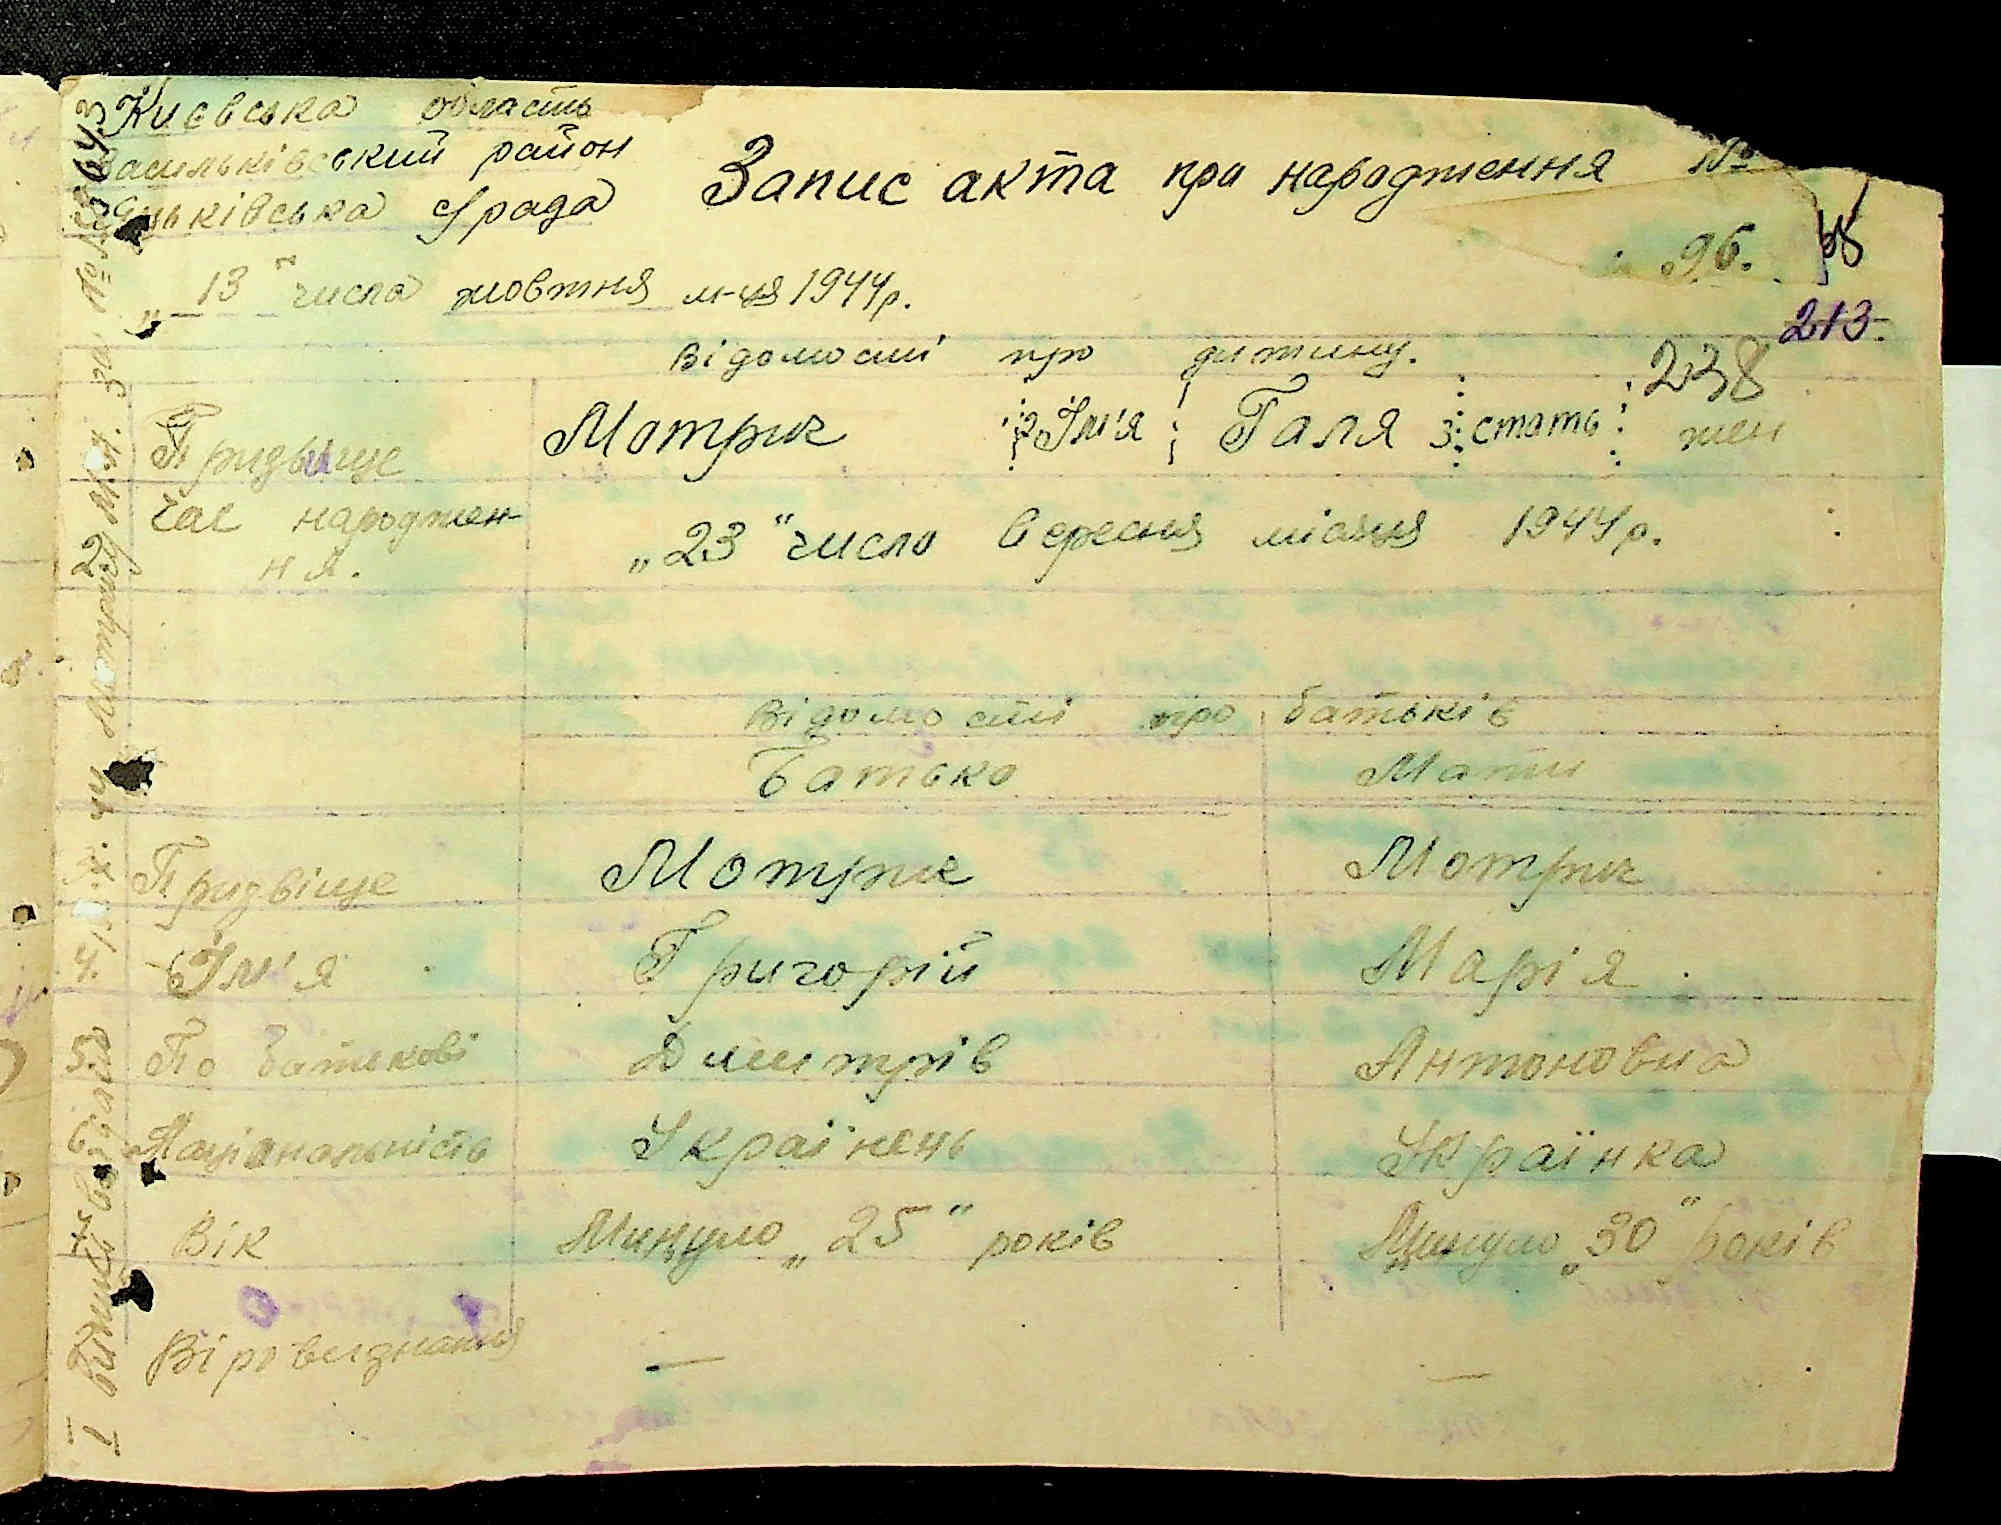 Києвська область
Васильківський район
рада
Запис акта при народження №
96.
„13" числа жовтня м-ця 1944р.
213
238
Відомості про дитину.
Призвище Мотрич 2 Ім'я Галя 3 стать жен
Час народжен-
ня. „23" число вересня місяця 1944р.
Відомості про батьків
Батько Мати
Призвіще Мотрич Мотрич
4. Ім'я Григорій Марія
5. По батькові Дмитрів Антоновна
6. Національність Українець Українка
7. Вік Минуло „25" років Минуло „30" років
Віровизнання — —